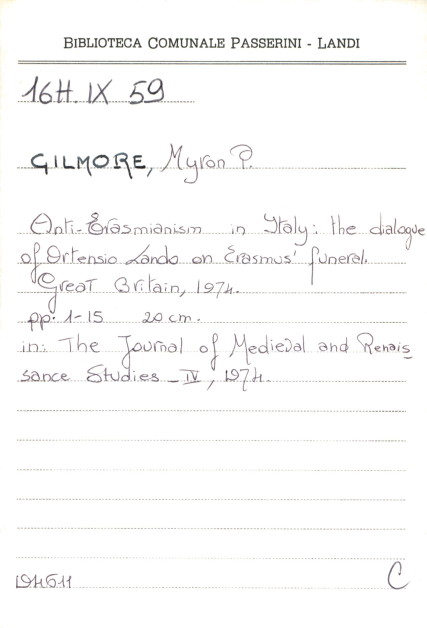 BIBLIOTECA COMUNALE PASSERINI - LANDI
16H. IX 59
GILMORE, Myron P.
Anti-Erasmianism in Italy: the dialogue
of Ortensio Lando on Erasmus' funeral.
Great Britain, 1974.
pp. 1-15 20 cm.
in: The Journal of Medieval and Renais_
sance Studies _ IV, 1974.
C